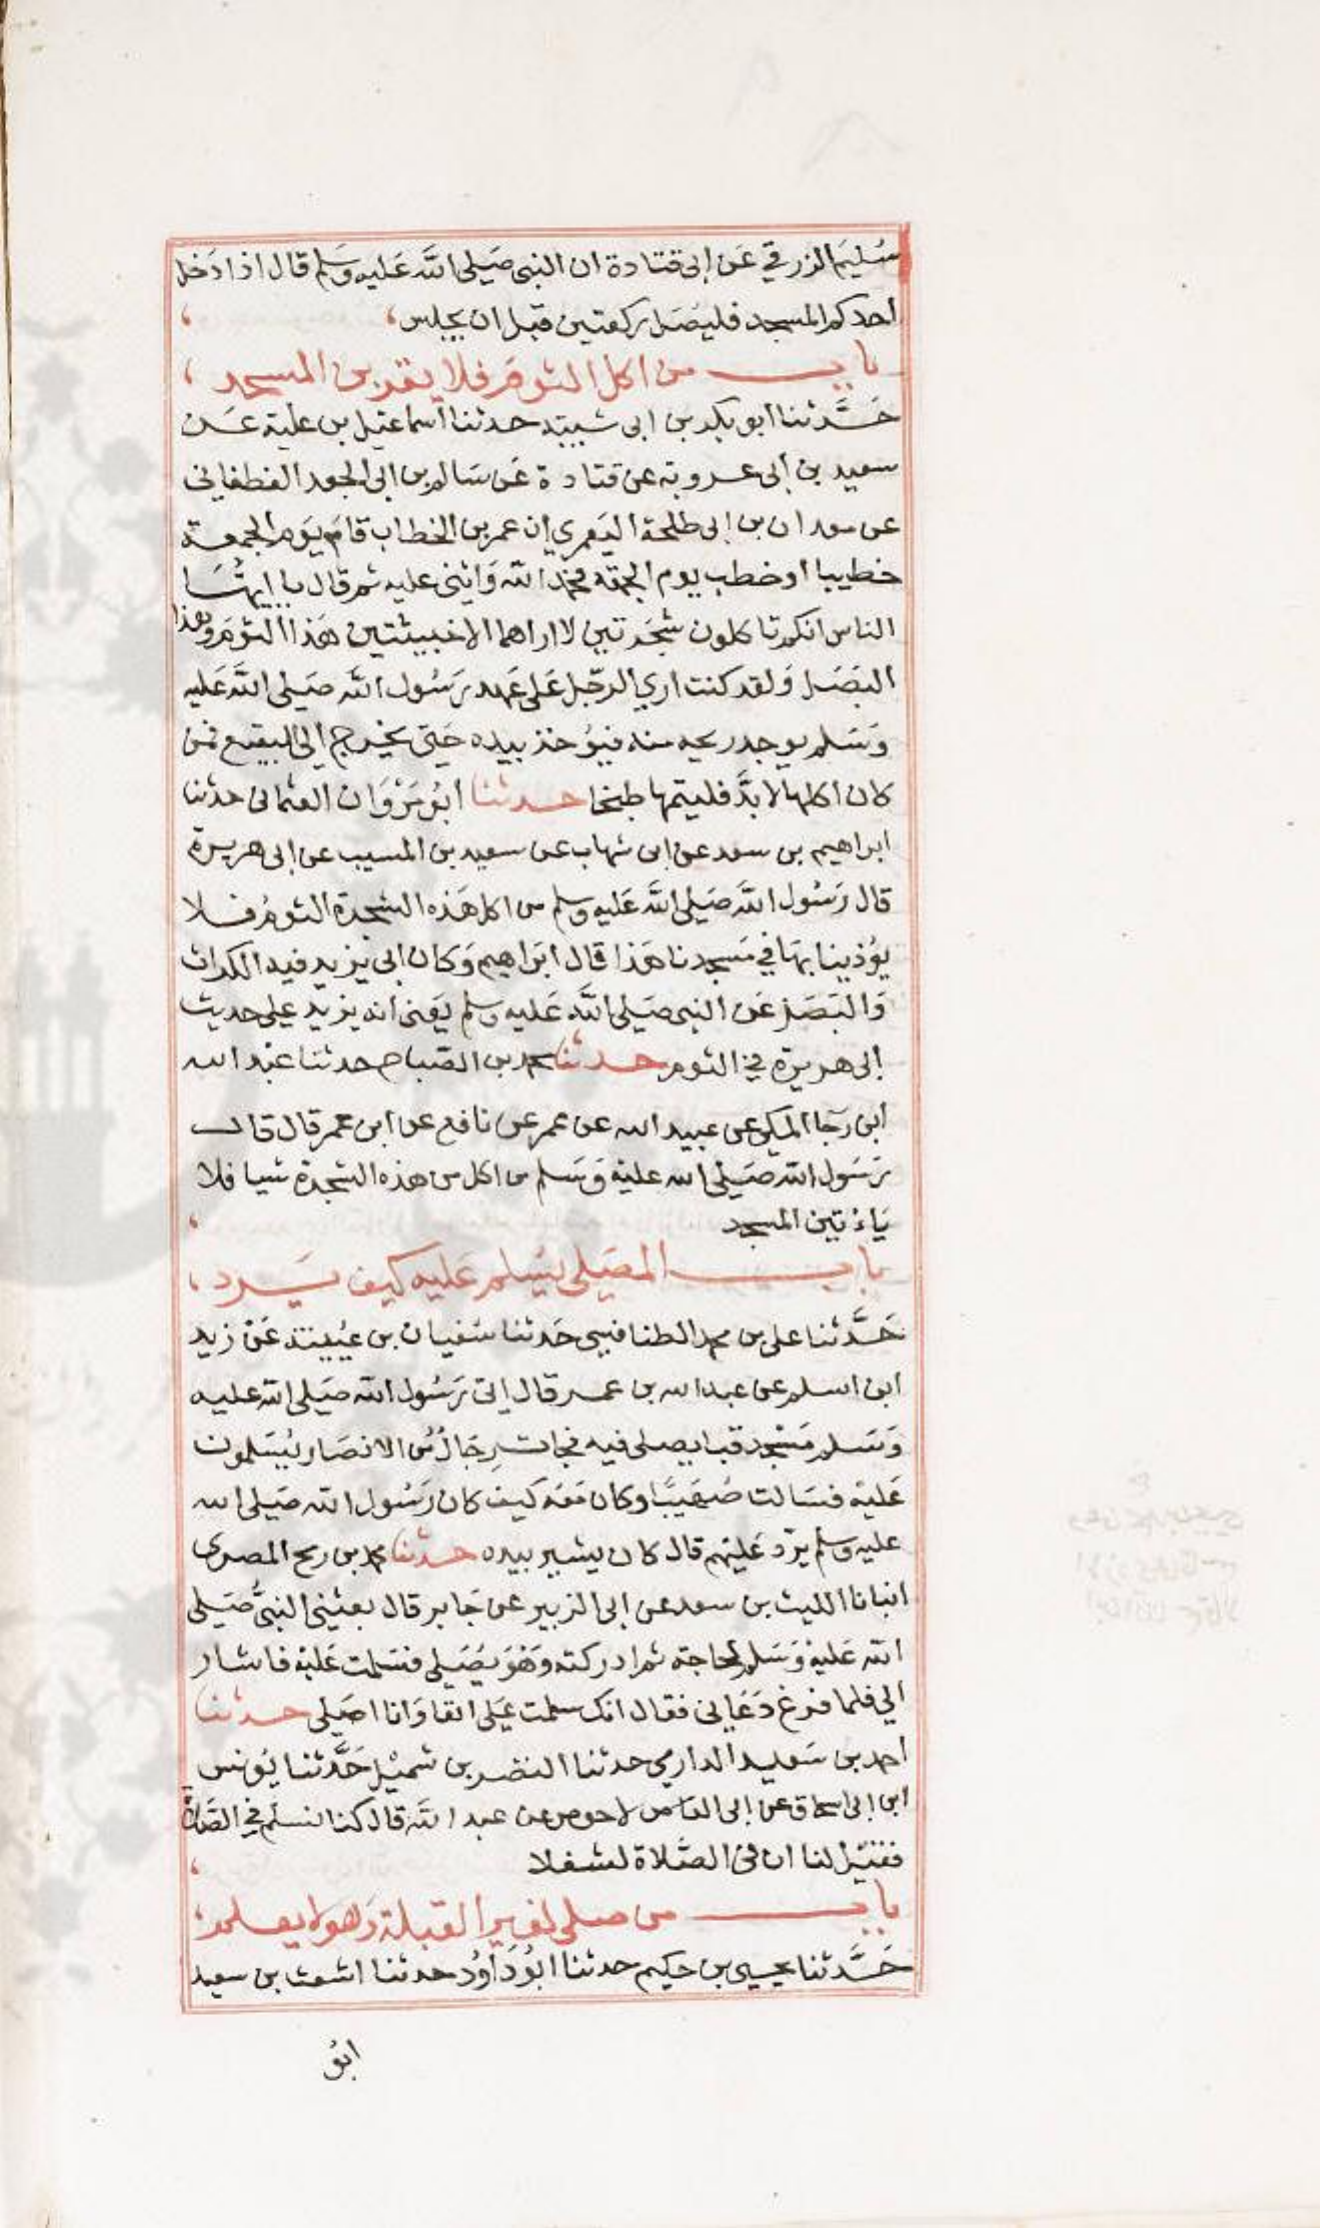 سُليم الزرقي عَن ابى قتادة ان النبى صَلى الله عَليه وسَلم قال اذا دَخل
احدكم المسجد فليصَل ركعتين قبل ان يجلس،
باب من اكل الثومَ فلا يقربن المسجد،
حَدَّثنا ابو بكر بن ابى شيبة حدثنا اسماعيل بن علية عَن
سعيد بن ابى عروبة عن قتادة عَن سَالم بن ابى الجعد الغطفانى
عن معدان بن ابى طلحة اليَعمري ان عمر بن الخطاب قامَ يَوم الجمعة
خطيبا او خطب يوم الجمعة فحَمد الله وَاثنى عليه ثم قال يا ايهَا
الناس انكم تاكلون شجَرتين لا اراهما الا خبيثتين هَذا الثومَ وهذا
البصَل وَلقد كنت اري الرجُل عَلى عَهد رَسُول الله صَلى الله عَليه
وَسَلم يوجد ريحه منه فيؤخذ بيده حَتى يخرج الى البقيع فمن
كان اكلها لا بدَّ فليمتها طبخا حدثنا ابُو مَرْوَان العثمانى حدثنا
ابراهيم بن سعد عن ابن شهاب عن سعيد بن المسيب عن ابى هريرة
قال رَسُول الله صَلى الله عَليه وسلم من اكل هَذه الشجرة الثوم فلا
يؤذينا بهَا في مَسجدنا هَذا قال ابرَاهيم وَكان ابى يَزيد فيه الكراث
وَالبَصَل عَن النبى صَلى الله عَليه وسلم يَعنى انه يزيد على حديث
ابى هريرَة في الثوم حدثنا محمد بن الصَباح حدثنا عَبْد الله
ابن رجَا المكى عن عبيد الله عن عمر عن نافع عن ابن عمر قال قال
رَسُول الله صَلى الله عليه وَسَلم من اكل من هذه الشجرة شيا فلا
يَاءتين المسجد
باب المصَلى يُسَلم عَليه كيف يَرد،
حَدَّثنا على بن محمد الطنافسى حَدثنا سُفيان بن عُيينة عَن زيد
ابن اسلم عن عبد الله بن عمر قال اتى رَسُول الله صَلى الله عليه
وَسَلم مَسْجد قبا يصلى فيه فجات رِجَالٌ من الانصَار يُسَلمون
عَليه فسَالت صُهَيبًا وكان مَعَه كيف كان رَسُول الله صَلى الله
عليه وسلم يَرد عَليهم قال كان يشير بيده حدثنا محمد بن رمح المصرى
انبانا الليث بن سعد عن ابى الزبير عن جَابر قال بعثنى النبىُّ صَلى
الله عَليه وَسَلم لحاجة ثم ادركته وَهوَ يصَلى فسَلمت عَليه فاشار
الي فلما فرغ دَعَانى فقال انك سلمت عَلى انفا وَانا اصَلى حدثنا
احمد بن سَعيد الدارمي حدثنا النضر بن شميْل حَدَّثنا يُونس
ابن ابى اسحاق عن ابى الاحوص عن عبد الله قال كنا نسلم في الصَلاة
فقيْل لنا ان فى الصَّلاة لشغلا
باب من صلى لغير القبلة وَهو لا يعلم،
حَدَّثنا يحيى بن حكيم حدثنا ابُو دَاوُد حدثنا اشعث بن سعيد
ابُو